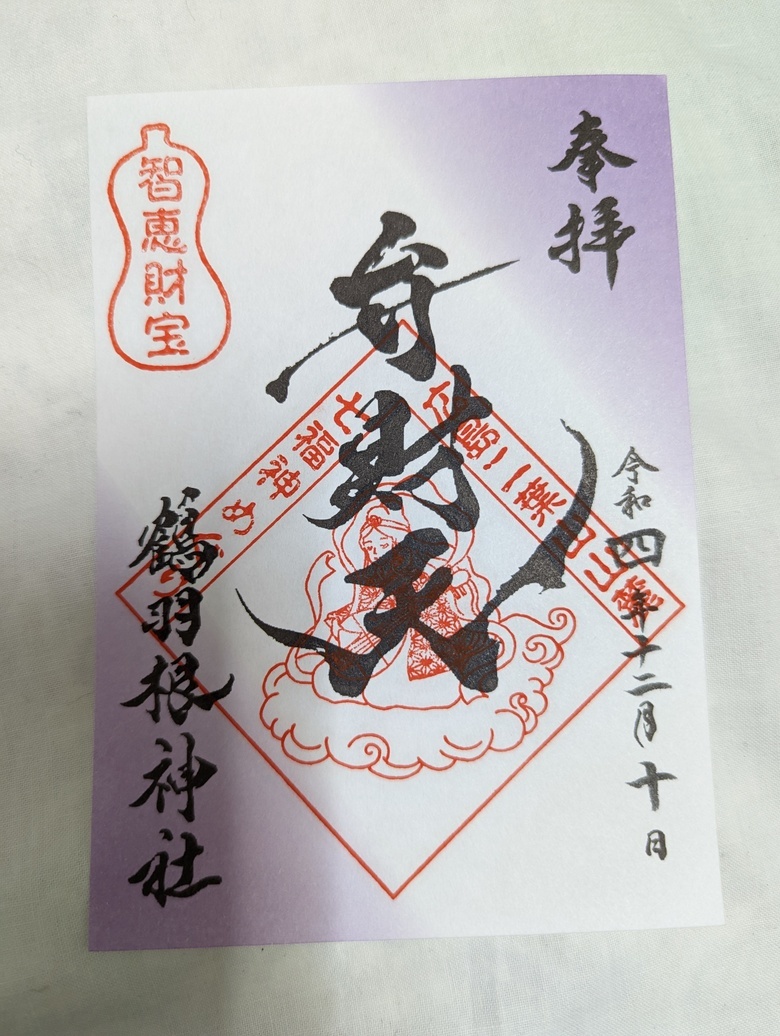 奉拝
令和四年十二月十日
弁財天
広島二葉山山麓
七福神めぐり
智恵財宝
鶴羽根神社